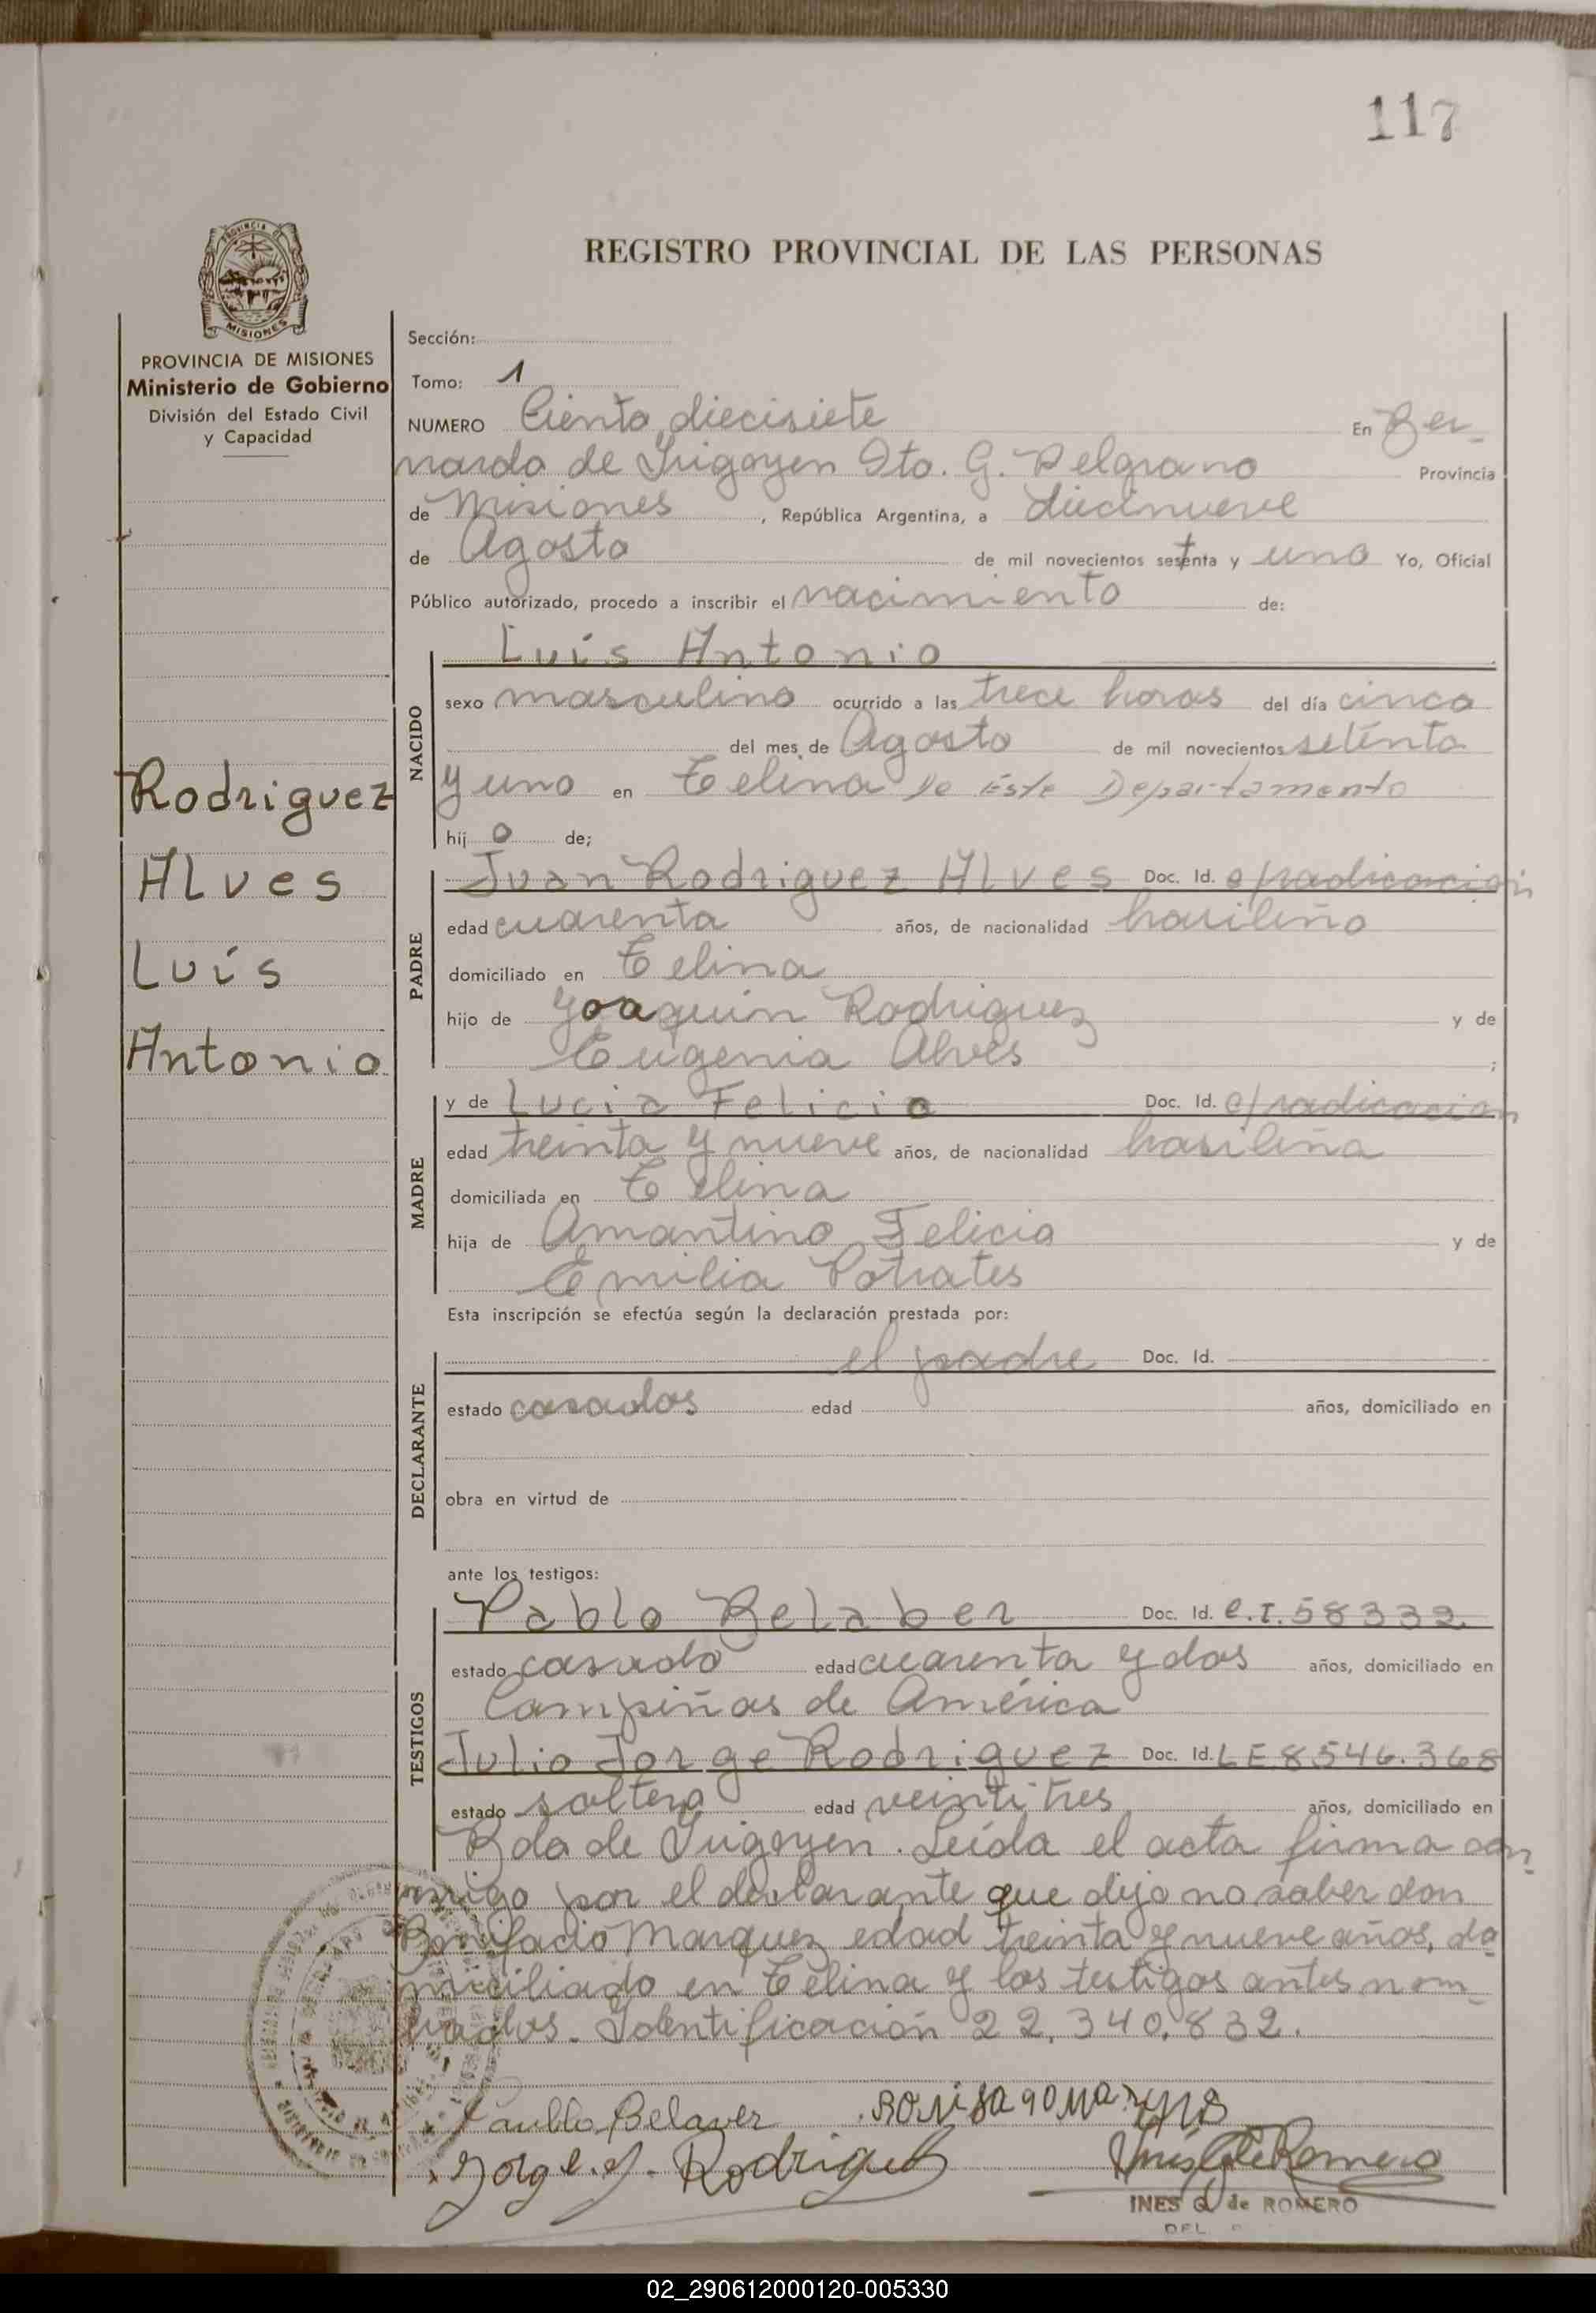 117
REGISTRO PROVINCIAL DE LAS PERSONAS
PROVINCIA DE MISIONES
Ministerio de Gobierno
División del Estado Civil
y Capacidad
Rodriguez
Alves
Luis
Antonio
Sección:
Tomo: 1
NUMERO Ciento diecisiete En Ber-
nardo de Irigoyen Dto. G. Belgrano Provincia
de Misiones, República Argentina, a diecinueve
de Agosto de mil novecientos setenta y uno Yo, Oficial
Público autorizado, procedo a inscribir el nacimiento de:
NACIDO
Luis Antonio
sexo masculino ocurrido a las trece horas del día cinco
del mes de Agosto de mil novecientos setenta
y uno en Celina de Este Departamento
hij o de;
PADRE
Juan Rodriguez Alves Doc. Id. c/radicación
edad cuarenta años, de nacionalidad brasileño
domiciliado en Celina
hijo de Joaquin Rodriguez y de
Eugenia Alves ;
MADRE
y de Lucia Felicio Doc. Id. c/radicacion
edad treinta y nueve años, de nacionalidad brasileña
domiciliada en Celina
hija de Amantino Felicio y de
Emilia Potrates
Esta inscripción se efectúa según la declaración prestada por:
DECLARANTE
el padre Doc. Id.
estado casados edad años, domiciliado en
obra en virtud de
ante los testigos:
TESTIGOS
Pablo Belaber Doc. Id. C.I. 58332
estado casado edad cuarenta y dos años, domiciliado en
Campiñas de América
Julio Jorge Rodriguez Doc. Id. LE 8546.368
estado soltero edad veintitres años, domiciliado en
Bdo de Irigoyen. Leída el acta firma con-
migo por el declarante que dijo no saber don
Bonifacio Marquez edad treinta y nueve años, do-
miciliado en Celina y los testigos antes nom-
brados. Identificación 22.340.832.
Paublo Belaver
Jorge J. Rodriguez
INES G. de ROMERO
02_290612000120-005330